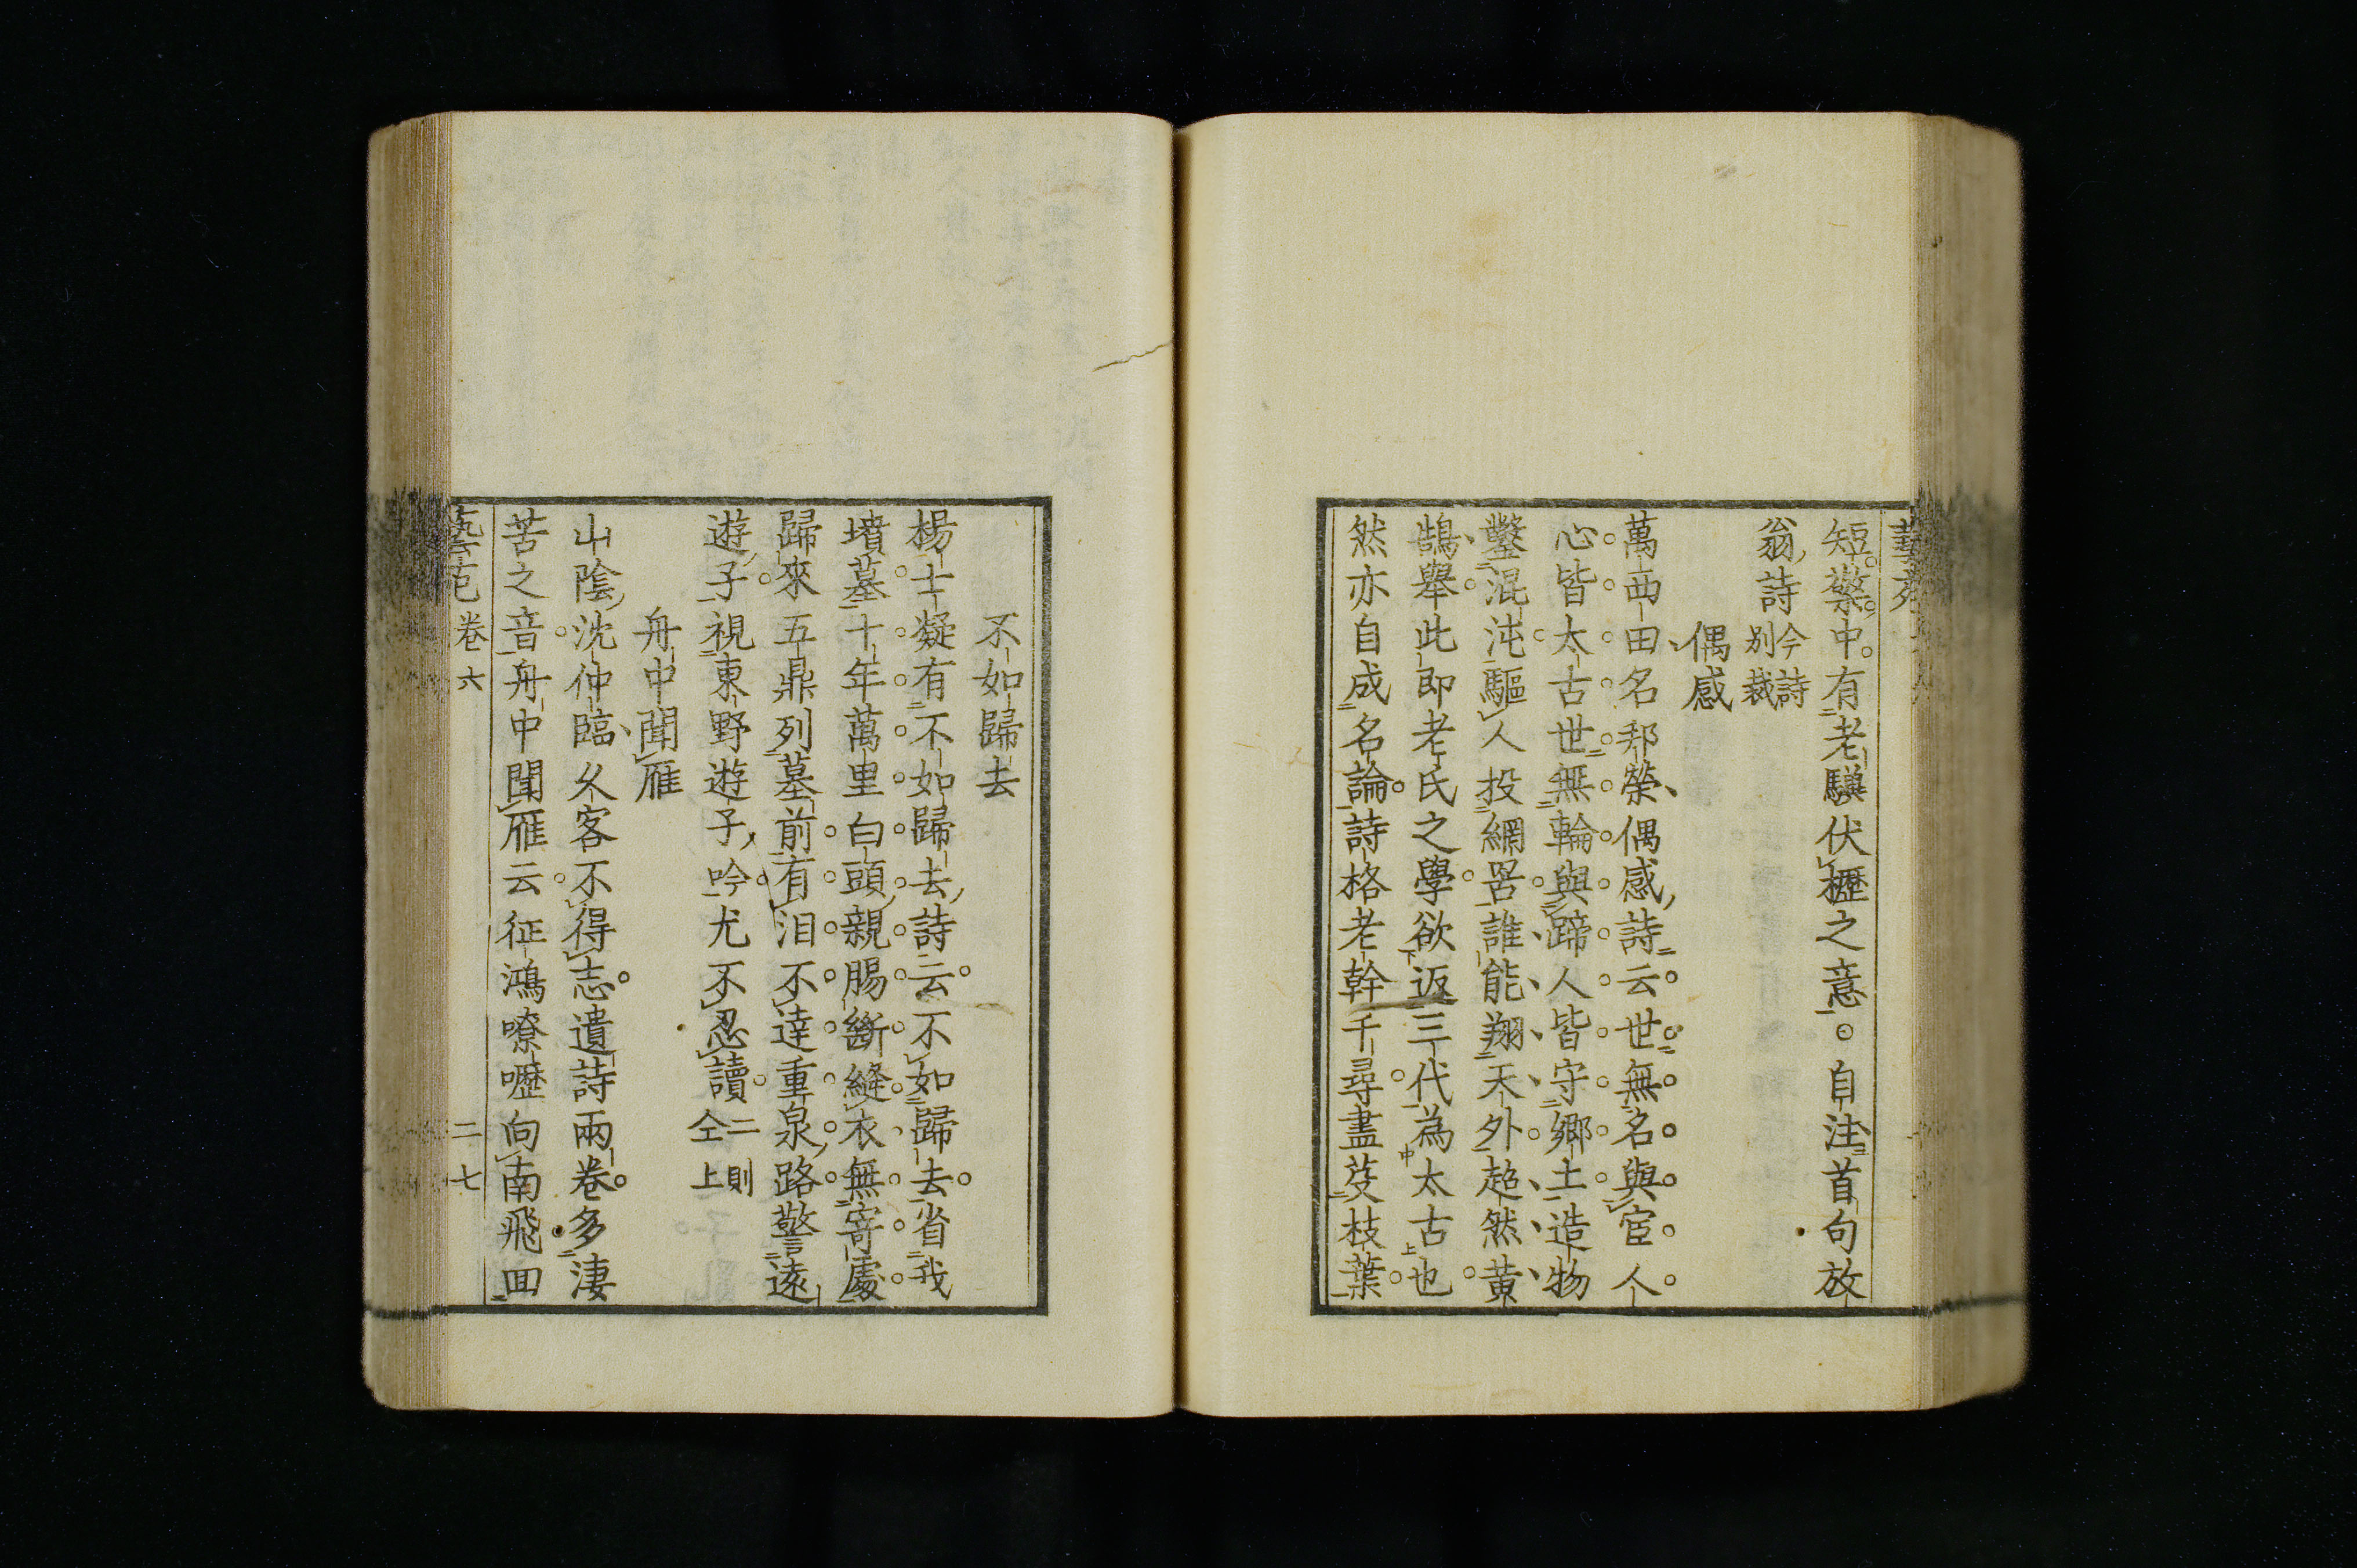 短檠中有老驥伏櫪之意自注首句放
翁詩今詩別裁
偶感
萬西田名邦榮偶感詩云世無名與宦人
心皆太古世無輪與蹄人皆守鄉土造物
鑿混沌驅人投網罟誰能翔天外超然黃
鵠舉此即老氏之學欲返三代為太古也
然亦自成名論詩格老幹千尋盡芟枝葉
不如歸去
楊士凝有不如歸去詩云不如歸去省我
墳墓十年萬里白頭親腸斷縫衣無寄處
歸來五鼎列墓前有泪不達重泉路警遠
遊子視東野遊子吟尤不忍讀二則仝上
舟中聞雁
山陰沈仲臨久客不得志遺詩兩卷多淒
苦之音舟中聞雁云征鴻嘹嚦向南飛回
藝苑 卷六 二七